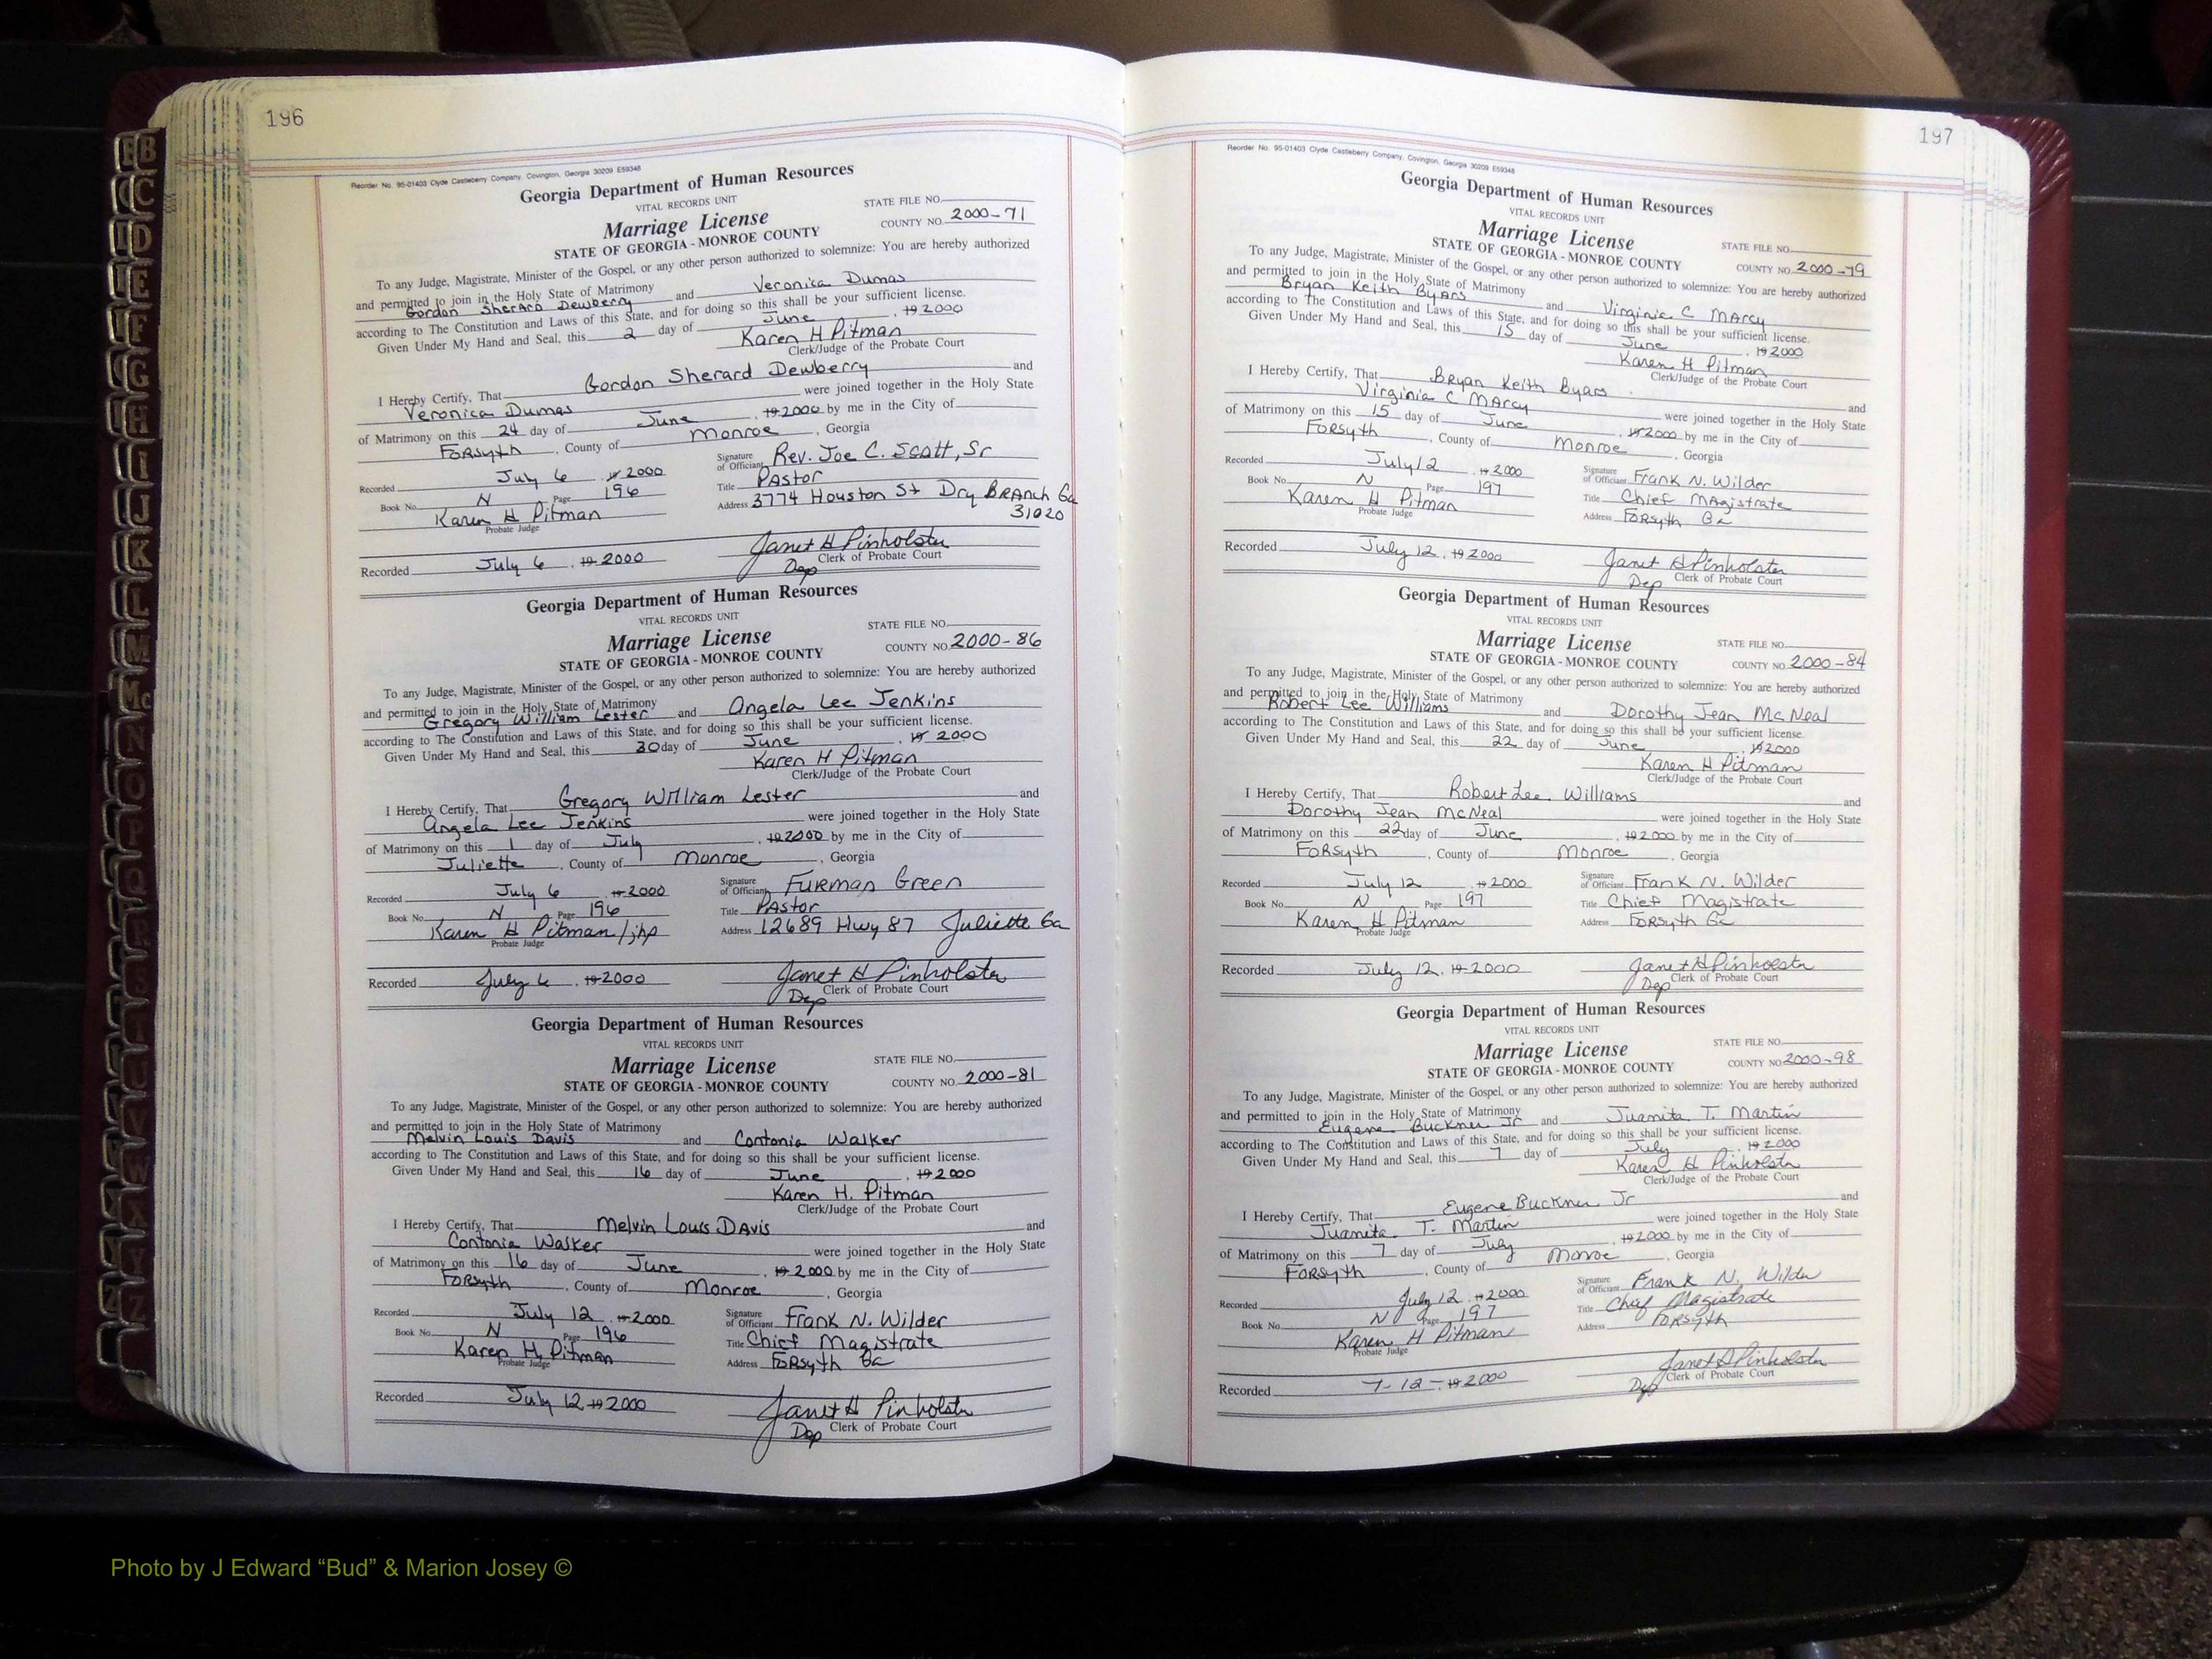 196
Reorder No. 95-01403 Clyde Castleberry Company, Covington, Georgia 30209 E59348
Georgia Department of Human Resources
VITAL RECORDS UNIT
Marriage License
STATE OF GEORGIA - MONROE COUNTY
STATE FILE NO.
COUNTY NO. 2000-71
To any Judge, Magistrate, Minister of the Gospel, or any other person authorized to solemnize: You are hereby authorized
and permitted to join in the Holy State of Matrimony
Gordon Sherard Dewberry and Veronica Dumas
according to The Constitution and Laws of this State, and for doing so this shall be your sufficient license.
Given Under My Hand and Seal, this 2 day of June , 19 2000
Karen H Pitman
Clerk/Judge of the Probate Court
I Hereby Certify, That Gordon Sherard Dewberry and
Veronica Dumas were joined together in the Holy State
of Matrimony on this 24 day of June , 19 2000 by me in the City of
Forsyth , County of Monroe , Georgia
Recorded July 6 , 19 2000
Book No. N Page 196
Karen H Pitman
Probate Judge
Signature of Officiant Rev. Joe C. Scott, Sr
Title Pastor
Address 3774 Houston St Dry Branch Ga
31020
Recorded July 6 , 19 2000
Janet H Pinholster
Dep Clerk of Probate Court
Georgia Department of Human Resources
VITAL RECORDS UNIT
Marriage License
STATE OF GEORGIA - MONROE COUNTY
STATE FILE NO.
COUNTY NO. 2000-86
To any Judge, Magistrate, Minister of the Gospel, or any other person authorized to solemnize: You are hereby authorized
and permitted to join in the Holy State of Matrimony
Gregory William Lester and Angela Lee Jenkins
according to The Constitution and Laws of this State, and for doing so this shall be your sufficient license.
Given Under My Hand and Seal, this 30 day of June , 19 2000
Karen H Pitman
Clerk/Judge of the Probate Court
I Hereby Certify, That Gregory William Lester and
Angela Lee Jenkins were joined together in the Holy State
of Matrimony on this 1 day of July , 19 2000 by me in the City of
Juliette , County of Monroe , Georgia
Recorded July 6 , 19 2000
Book No. N Page 196
Karen H Pitman/jhp
Probate Judge
Signature of Officiant Furman Green
Title Pastor
Address 12689 Hwy 87 Juliette Ga
Recorded July 6 , 19 2000
Janet H Pinholster
Dep Clerk of Probate Court
Georgia Department of Human Resources
VITAL RECORDS UNIT
Marriage License
STATE OF GEORGIA - MONROE COUNTY
STATE FILE NO.
COUNTY NO. 2000-81
To any Judge, Magistrate, Minister of the Gospel, or any other person authorized to solemnize: You are hereby authorized
and permitted to join in the Holy State of Matrimony
Melvin Louis Davis and Contonia Walker
according to The Constitution and Laws of this State, and for doing so this shall be your sufficient license.
Given Under My Hand and Seal, this 16 day of June , 19 2000
Karen H. Pitman
Clerk/Judge of the Probate Court
I Hereby Certify, That Melvin Louis Davis and
Contonia Walker were joined together in the Holy State
of Matrimony on this 16 day of June , 19 2000 by me in the City of
Forsyth , County of Monroe , Georgia
Recorded July 12 , 19 2000
Book No. N Page 196
Karen H. Pitman
Probate Judge
Signature of Officiant Frank N. Wilder
Title Chief Magistrate
Address Forsyth Ga
Recorded July 12 19 2000
Janet H Pinholster
Dep Clerk of Probate Court
197
Reorder No. 95-01403 Clyde Castleberry Company, Covington, Georgia 30209 E59348
Georgia Department of Human Resources
VITAL RECORDS UNIT
Marriage License
STATE OF GEORGIA - MONROE COUNTY
STATE FILE NO.
COUNTY NO. 2000-79
To any Judge, Magistrate, Minister of the Gospel, or any other person authorized to solemnize: You are hereby authorized
and permitted to join in the Holy State of Matrimony
Bryan Keith Byars and Virginia C Marcy
according to The Constitution and Laws of this State, and for doing so this shall be your sufficient license.
Given Under My Hand and Seal, this 15 day of June , 19 2000
Karen H Pitman
Clerk/Judge of the Probate Court
I Hereby Certify, That Bryan Keith Byars and
Virginia C Marcy were joined together in the Holy State
of Matrimony on this 15 day of June , 19 2000 by me in the City of
Forsyth , County of Monroe , Georgia
Recorded July 12 , 19 2000
Book No. N Page 197
Karen H Pitman
Probate Judge
Signature of Officiant Frank N. Wilder
Title Chief Magistrate
Address Forsyth Ga
Recorded July 12 , 19 2000
Janet H Pinholster
Dep Clerk of Probate Court
Georgia Department of Human Resources
VITAL RECORDS UNIT
Marriage License
STATE OF GEORGIA - MONROE COUNTY
STATE FILE NO.
COUNTY NO. 2000-84
To any Judge, Magistrate, Minister of the Gospel, or any other person authorized to solemnize: You are hereby authorized
and permitted to join in the Holy State of Matrimony
Robert Lee Williams and Dorothy Jean McNeal
according to The Constitution and Laws of this State, and for doing so this shall be your sufficient license.
Given Under My Hand and Seal, this 22 day of June , 19 2000
Karen H Pitman
Clerk/Judge of the Probate Court
I Hereby Certify, That Robert Lee Williams and
Dorothy Jean McNeal were joined together in the Holy State
of Matrimony on this 22 day of June , 19 2000 by me in the City of
Forsyth , County of Monroe , Georgia
Recorded July 12 , 19 2000
Book No. N Page 197
Karen H Pitman
Probate Judge
Signature of Officiant Frank N. Wilder
Title Chief Magistrate
Address Forsyth Ga
Recorded July 12 , 19 2000
Janet H Pinholster
Dep Clerk of Probate Court
Georgia Department of Human Resources
VITAL RECORDS UNIT
Marriage License
STATE OF GEORGIA - MONROE COUNTY
STATE FILE NO.
COUNTY NO. 2000-98
To any Judge, Magistrate, Minister of the Gospel, or any other person authorized to solemnize: You are hereby authorized
and permitted to join in the Holy State of Matrimony
Eugene Buckner Jr and Juanita T. Martin
according to The Constitution and Laws of this State, and for doing so this shall be your sufficient license.
Given Under My Hand and Seal, this 7 day of July , 19 2000
Karen H Pinholster
Clerk/Judge of the Probate Court
I Hereby Certify, That Eugene Buckner Jr and
Juanita T. Martin were joined together in the Holy State
of Matrimony on this 7 day of July , 19 2000 by me in the City of
Forsyth , County of Monroe , Georgia
Recorded July 12 , 19 2000
Book No. N Page 197
Karen H Pitman
Probate Judge
Signature of Officiant Frank N. Wilder
Title Chief Magistrate
Address Forsyth
Recorded 7-12- 19 2000
Janet H Pinholster
Dep Clerk of Probate Court
B
C
D
E
F
G
H
I
J
K
L
M
Mc
N
O
P
Photo by J Edward “Bud” & Marion Josey ©